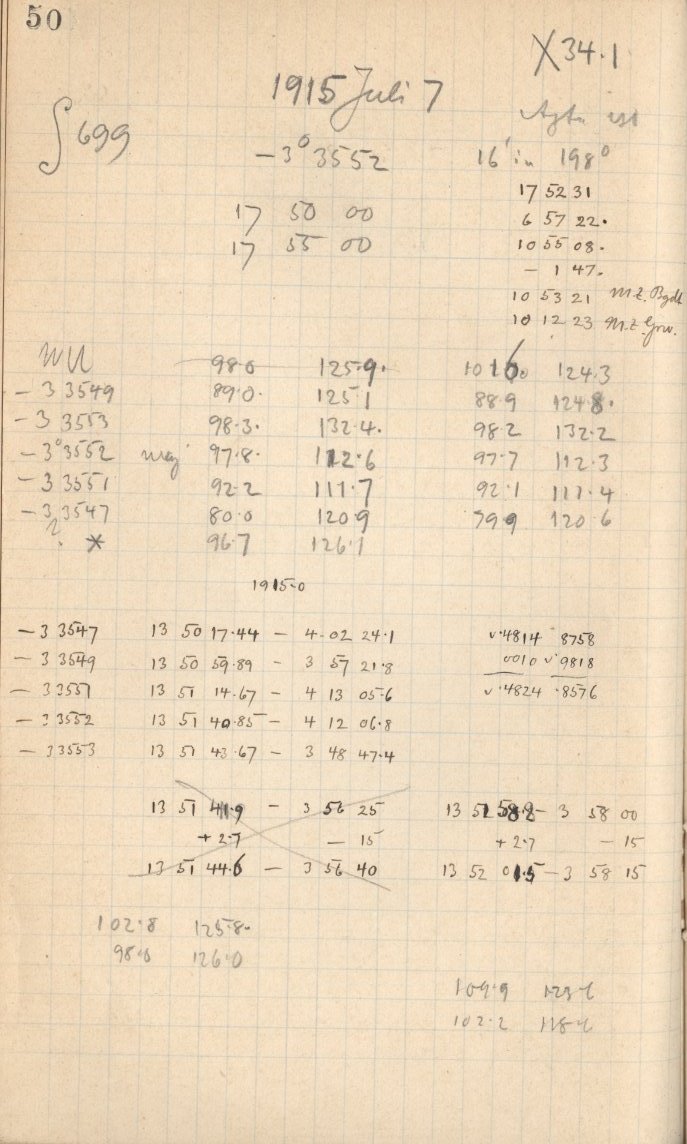 50
X 34.1
1915 Juli 7
∫ 699
ist
-3° 3552
16' in 198°
17 52 31
17 50 00
6 57 22.
17 55 00
10 55 08.
- 1 47.
10 53 21 M.Z. Bgdt
10 12 23 M.Z. Grw.
98.0 125.9. 101 6. 124.3
- 3 3549 89.0. 125.1 88.9 124.8.
- 3 3553 98.3. 132.4. 98.2 132.2
- 3° 3552 97.8. 112.6 97.7 112.3
- 3 3551 92.2 111.7 92.1 111.4
- 3 3547 80.0 120.9 79.9 120.6
? * 96.7 126.1
1915.0
- 3 3547 13 50 17.44 - 4 02 24.1 v.4814 8758
- 3 3549 13 50 59.89 - 3 57 21.8 0010 v.9818
- 3 3551 13 51 14.67 - 4 13 05.6 v.4824 .8576
- 3 3552 13 51 40.85 - 4 12 06.8
- 3 3553 13 51 43.67 - 3 48 47.4
13 51 41.9 - 3 56 25 13 51 58.8 - 3 58 00
+ 2.7 - 15 + 2.7 - 15
13 51 44.6 - 3 56 40 13 52 01.5 - 3 58 15
102.8 125.8.
98.0 126.0
109.9
102.2